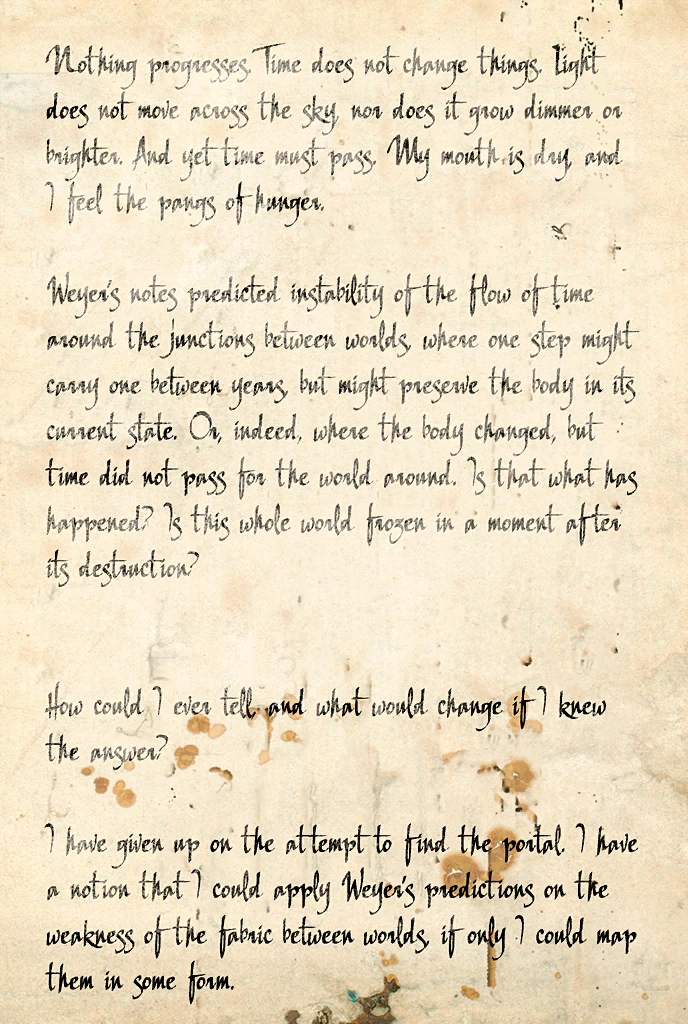 Nothing progresses. Time does not change things. Light
does not move across the sky, nor does it grow dimmer or
brighter. And yet time must pass. My mouth is dry, and
I feel the pangs of hunger.
Weyer's notes predicted instability of the flow of time
around the junctions between worlds, where one step might
carry one between years, but might preserve the body in its
current state. Or, indeed, where the body changed, but
time did not pass for the world around. Is that what has
happened? Is this whole world frozen in a moment after
its destruction?
How could I ever tell, and what would change if I knew
the answer?
I have given up on the attempt to find the portal. I have
a notion that I could apply Weyer's predictions on the
weakness of the fabric between worlds, if only I could map
them in some form.